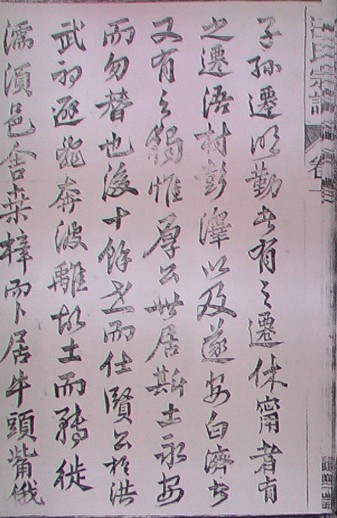 汪氏宗譜 卷一
子孫遷歙勤者有之遷休甯者有
之遷浯村彭澤以及遂安白濟者
又有之獨惟厚公世居斯土永安
而勿替也後十餘世而仕賢公於洪
武初避亂奔波離故土而轉徙
濡須邑舍桑梓而卜居牛頭觜俄